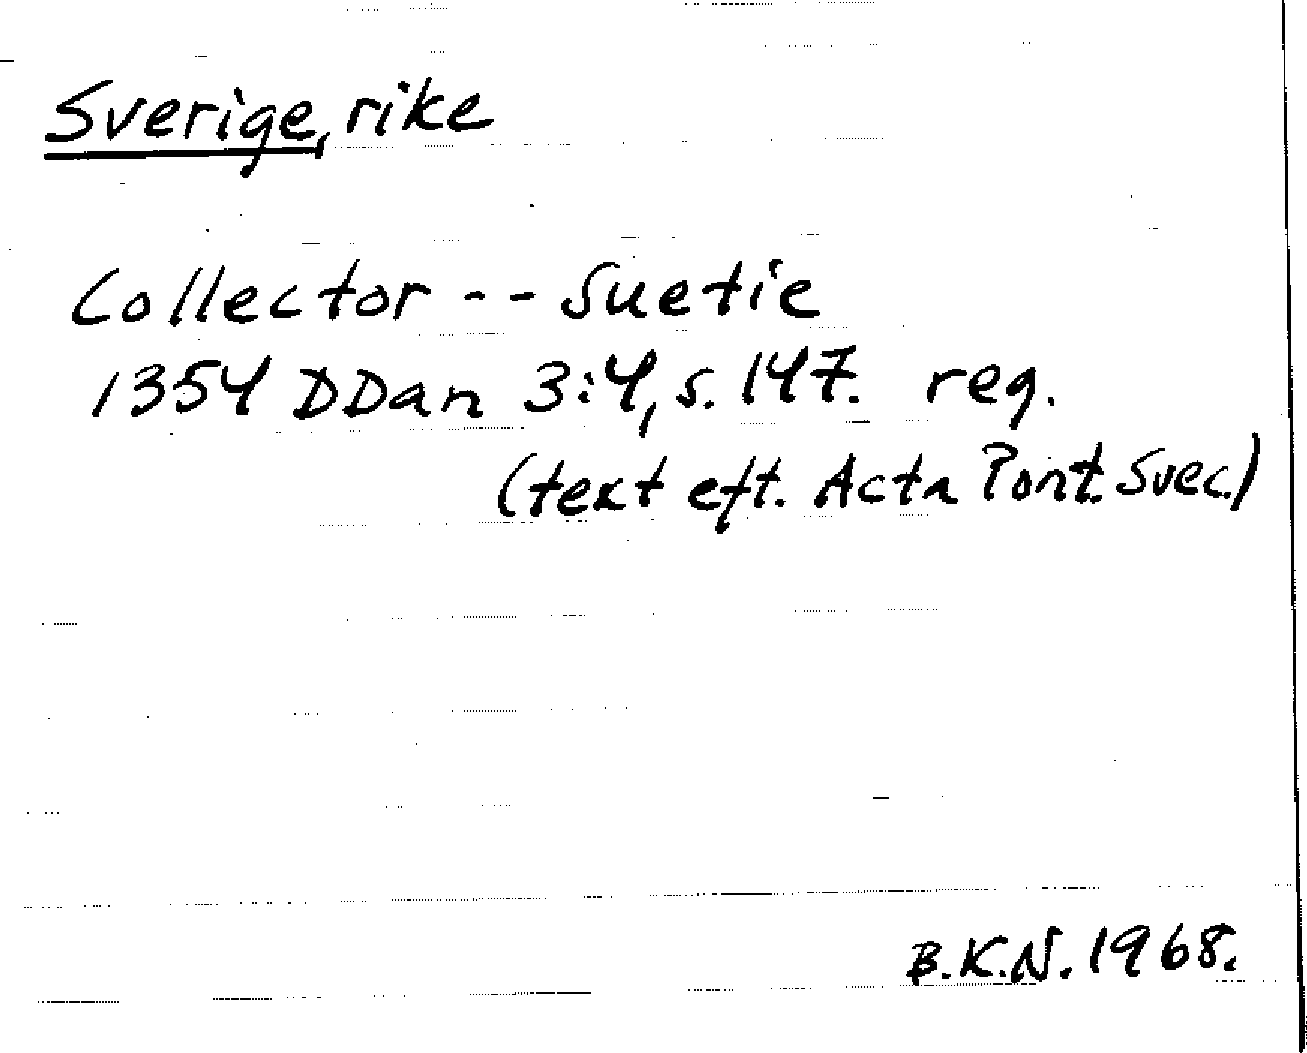 Sverige, rike
Collector -- Suetie
1354 DDan 3:4, s. 147. reg.
(text eft. Acta Pont. Svec.)
B.K.N. 1968.